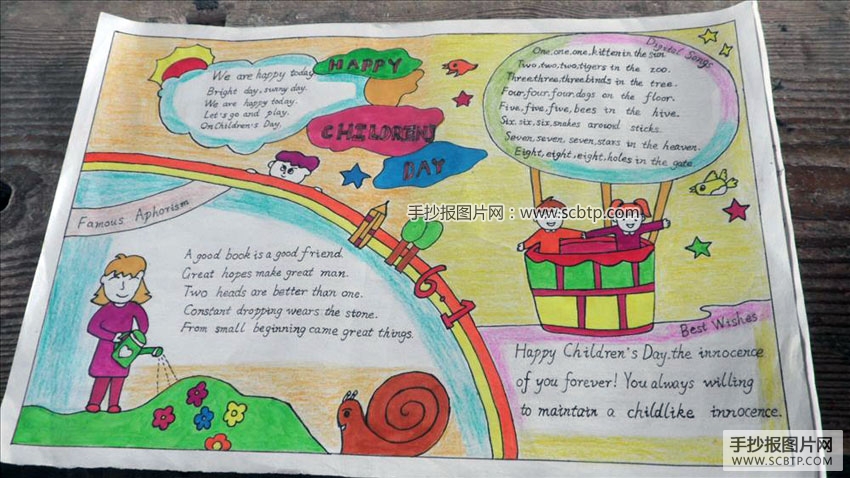 We are happy today
Bright day, sunny day.
We are happy today.
Let's go and play,
On Children's Day.
HAPPY
CHILDREN'
DAY
Digital Songs
One, one, one, kitten in the sun.
Two, two, two, tigers in the zoo.
Three, three, three birds in the tree.
Four, four, four, dogs on the floor.
Five, five, five, bees in the hive.
Six, six, six, snakes around sticks.
Seven, seven, seven, stars in the heaven.
Eight, eight, eight, holes in the gate
手抄报图片网：www.scbtp.com
Famous Aphorism
A good book is a good friend.
Great hopes make great man.
Two heads are better than one.
Constant dropping wears the stone.
From small beginning came great things.
6.1
Best Wishes
Happy Children's Day, the innocence
of you forever! You always willing
to maintain a childlike innocence.
手抄报图片网
WWW.SCBTP.COM